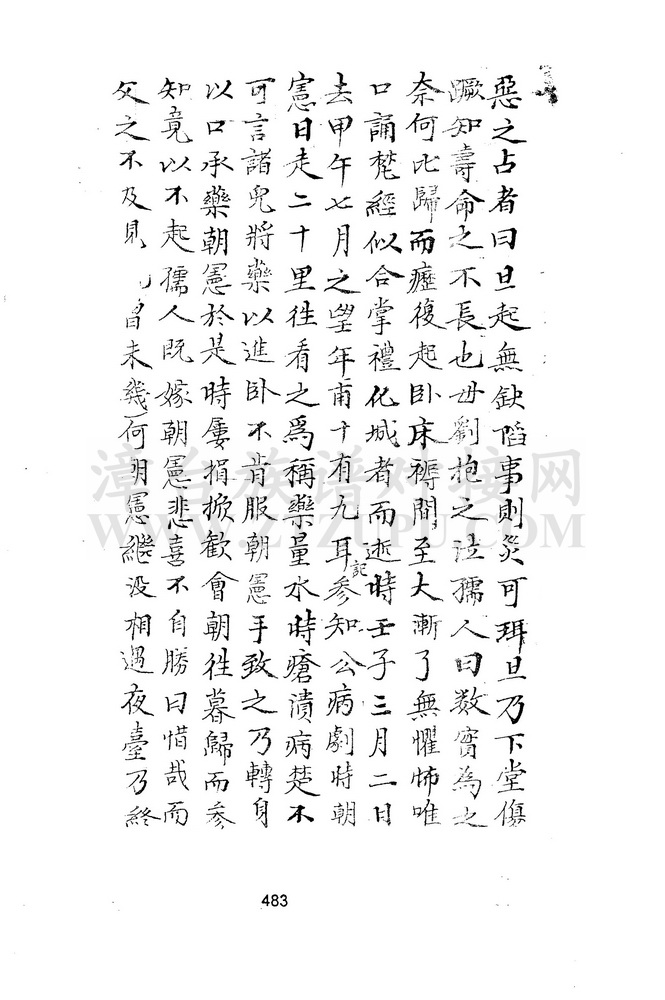 惡之占者曰旦起無缺陷事則災可珥旦乃下堂傷
蹶知壽命之不長也毋劉抱之泣孺人曰数實為之
奈何比歸而癧復起卧床褥間至大漸了無懼怖唯
口誦梵經似合掌禮化城者而逝時壬子三月二日
去甲午七月之望年甫十有九耳記參知公病劇時朝
憲日走二十里往看之為稱藥量水時瘡潰病楚不
可言諸兒將藥以進卧不肯服朝憲手致之乃轉身
以口承藥朝憲於是時屢捐掀歡會朝往暮歸而參
知竟以不起孺人既嫁朝憲悲喜不自勝曰惜哉而
父之不及見 曾未幾何朝憲繼没相遇夜臺乃終
漳台族谱对接网
483